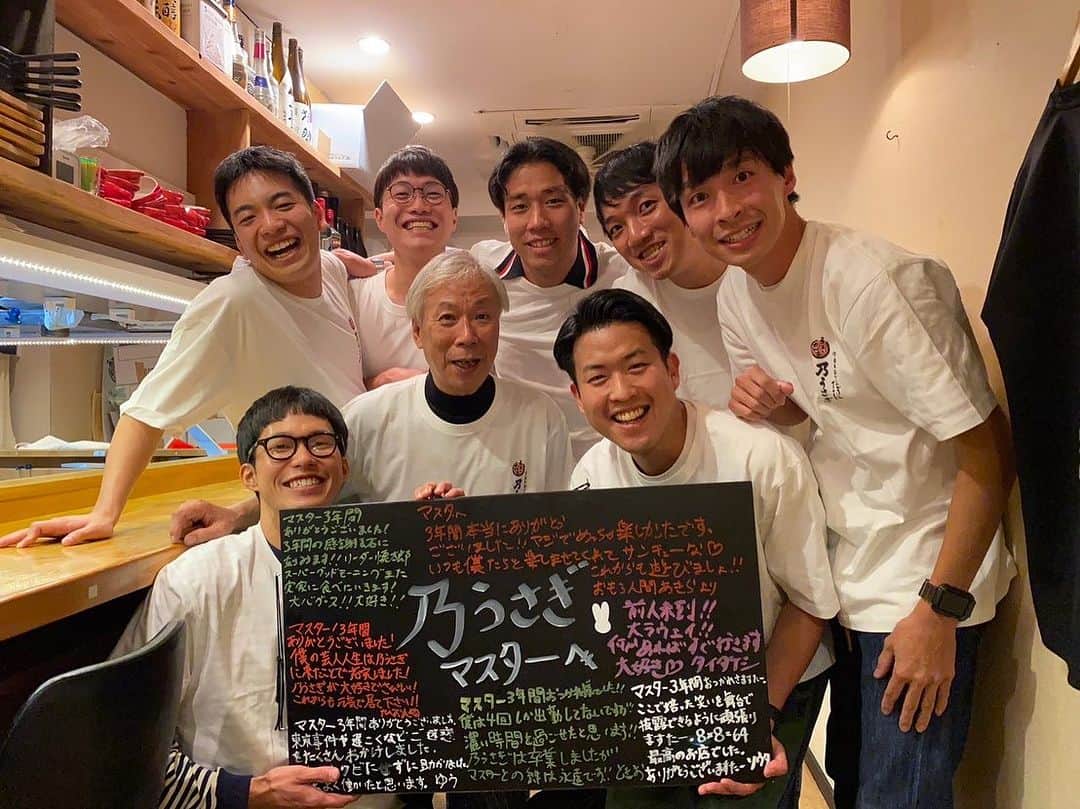 マスター3年間
ありがとうございました！
3年間の感謝を石に
刻みます!! リーダー慎太郎
スーパーグッドモーニングまた
飲食に食べにいきます！
大パワース!! 大好き!!
マスターへ
3年間本当にありがとう
ございました!! マジでめっちゃ楽しかったです。
いつも僕たちを楽しませてくれてサンキューな♡
これからも遊びましょ!!
おもろ人間あきらより
乃うさぎ
マスターへ
前人未到!!
大ラウェイ!!
何かあればすぐ行きます
大好き♡ タイダイシ
マスター！3年間
ありがとうございました！
僕の芸人人生は乃うさぎ
に来たことで
乃うさぎが大好きでさみしい！
これからも元気に居て下さい!!
マスター3年間ありがとうございました。
東京事件や遅こくなどご迷惑
をたくさんおかけしました。
クビにせずに助かりました。
よく働いたと思います。ゆう
マスター3年間お疲れ様でした!!
僕は4回しか出勤してないですが
濃い時間を過ごせたと思います!!
乃うさぎは卒業しましたが
マスターとの絆は永遠です!!
マスター3年間おつかれさまでした。
ここで培った笑いを舞台で
披露できるように頑張り
ますたー。8×8=64
最高のお店でした。
ありがとうございましたー ソウタ
乃うさぎ